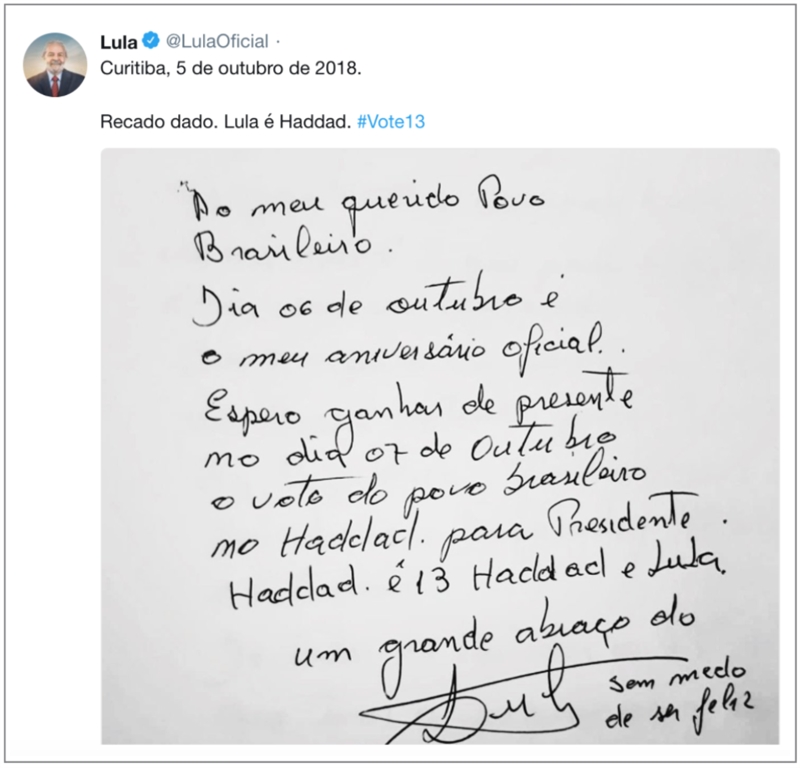 Lula @LulaOficial ·
Curitiba, 5 de outubro de 2018.
Recado dado. Lula é Haddad. #Vote13
"Ao meu querido Povo
Brasileiro.
Dia 06 de outubro é
o meu aniversário oficial.
Espero ganhar de presente
no dia 07 de Outubro
o voto do povo brasileiro
no Haddad. para Presidente.
Haddad. é 13 Haddad e Lula.
um grande abraço do
Lula sem medo
de ser feliz